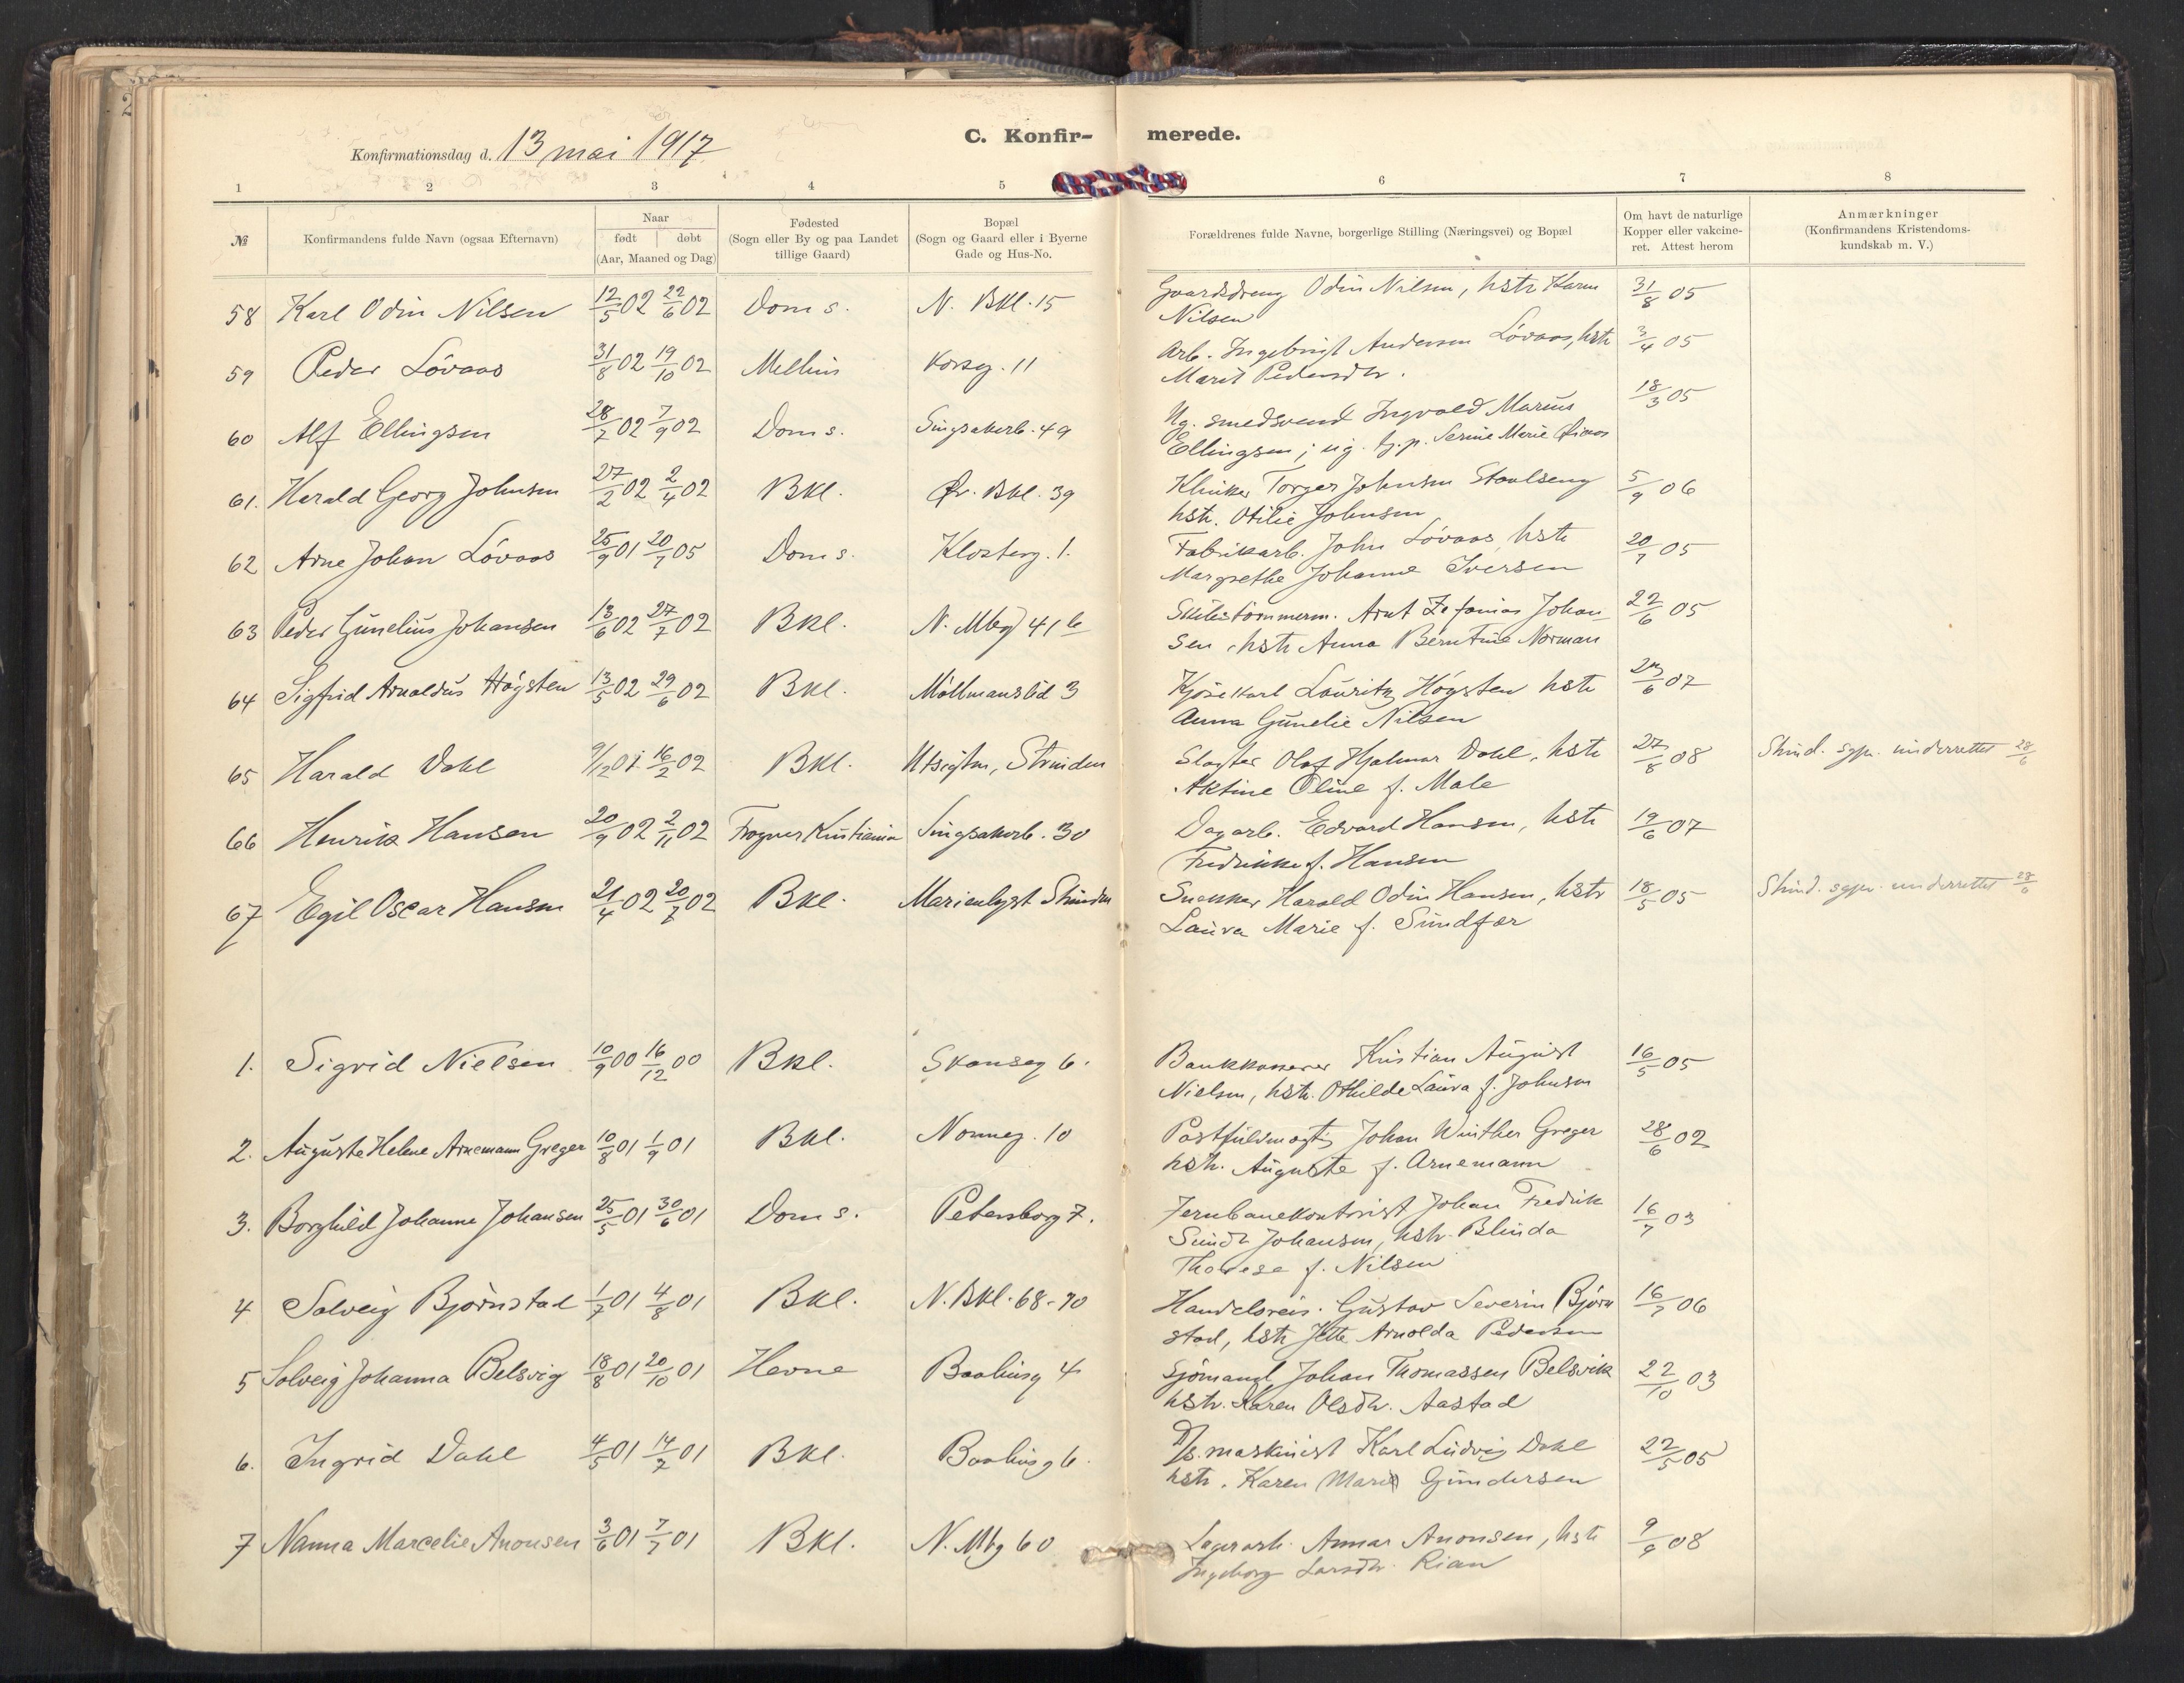 C. Konfir- merede.
Konfirmationsdag d. 13 mai 1917
1 2 3 4 5 6 7 8
№ Konfirmandens fulde Navn (ogsaa Efternavn)
Naar
født døbt
(Aar, Maaned og Dag)
Fødested
(Sogn eller By og paa Landet
tillige Gaard)
Bopæl
(Sogn og Gaard eller i Byerne
Gade og Hus-No.
Forældrenes fulde Navne, borgerlige Stilling (Næringsvei) og Bopæl
Om havt de naturlige
Kopper eller vakcine-
ret. Attest herom
Anmærkninger
(Konfirmandens Kristendoms-
kundskab m. V.)
58 Karl Odin Nilsen 12/5 02 22/6 02 Doms. N. Bkl. 15 Gaardsdreng Odin Nilsen, hstr Karen 31/8 05
Nilsen
59 Peder Lövaas 31/8 02 19/10 02 Melhus Korsg. 11 Arb. Ingebrigt Andersen Lövaas, hstr 3/4 05
Marit Pedersdtr.
60 Alf Ellingsen 28/7 02 7/9 02 Doms. Singsakerb. 49 Ug. smedsvend Ingvald Marius 18/3 05
Ellingsen; ug. tj.p. Serine Marie
61. Harald Georg Johnsen 27/2 02 2/4 02 Bkl. Øv. Bkl. 39 Klinker Torger Johnsen Stavlseng 5/9 06
hstr. Otilie Johnsen
62 Arne Johan Lövaas 25/9 01 20/7 05 Doms. Klosterg. 1. Fabrikarb. John Lövaas hstr 20/7 05
Margrethe Johanne Iversen
63 Peder Gunelius Johansen 13/6 02 27/7 02 Bkl. N. Mbg 41 b Skibstömmerm. Arnt Zefanias Johan- 22/6 05
sen, hstr Anna Berntine Norman
64 Sigfrid Arnoldus Högsten 13/5 02 29/6 02 Bkl. Möllmanslid 3 Kjörekarl Lauritz Högsten hstr 6 07
Anna Gunelie Nilsen
65 Harald Dahl 9/12 01 16/2 02 Bkl. Utsigten, Strinden Slagter Olaf Hjalmar Dahl, hstr 27/8 08 Strind. sgpr. underrettet 28/6
Aktine Oline f. Male
66 Henrik Hansen 20/9 02 2/11 02 Frogner Kristiania Singsakerb. 30 Dagarb. Edvard Hansen, hstr 19/6 07
Fredrikke f. Hansen
67 Egil Oscar Hansen 21/4 02 20/7 02 Bkl. Marienlyst Strinden Snekker Harald Odin Hansen, hstr 18/5 05 Strind. sgpr. underrettet 28/6
Laura Marie f. Sundfær
1. Sigrid Nielsen 10/9 00 16/12 00 Bkl. Skanseg 6. Bankkasserer Kristian August 16/5 05
Nielsen, hstr. Othilde Laura f. Johnsen
2. Auguste Helene Arnemann Greger 10/8 01 1/9 01 Bkl. Nonneg. 10 Postfuldmægtig Johan Winther Greger 28/6 02
hstr. Auguste f. Arnemann
3. Borghild Johanne Johansen 25/5 01 30/6 01 Doms. Petersborg 7. Jernbanekontorist Johan Fredrik 16/7 03
Sundt Johansen, hstr. Blinda
Therese f. Nilsen
4 Solveig Björnstad 1/7 01 4/8 01 Bkl. N. Bkl. 68-70 Handelsreis. Gustav Severin Björn 16/7 06
stad, hstr Jette Arnolda Pedersen
5 Solveig Johanna Belsvig 18/8 01 20/10 01 Hevne Baahusg 4 Sjömand Johan Thomassen Belsvik 22/10 03
hstr. Karen Olsdtr. Aastad
6. Ingrid Dahl 4/5 01 14/7 01 Bkl. Baahusg 6. D/s. maskinist Karl Ludvig Dahl 22/5 05
hstr. Karen Marie Gundersen
7 Nanna Marcelie Anonsen 3/6 01 7/7 01 Bkl. N. Mbg 60 Lagerarb. Annar Anonsen, hstr 9/9 08
Ingeborg Larsdtr. Rian